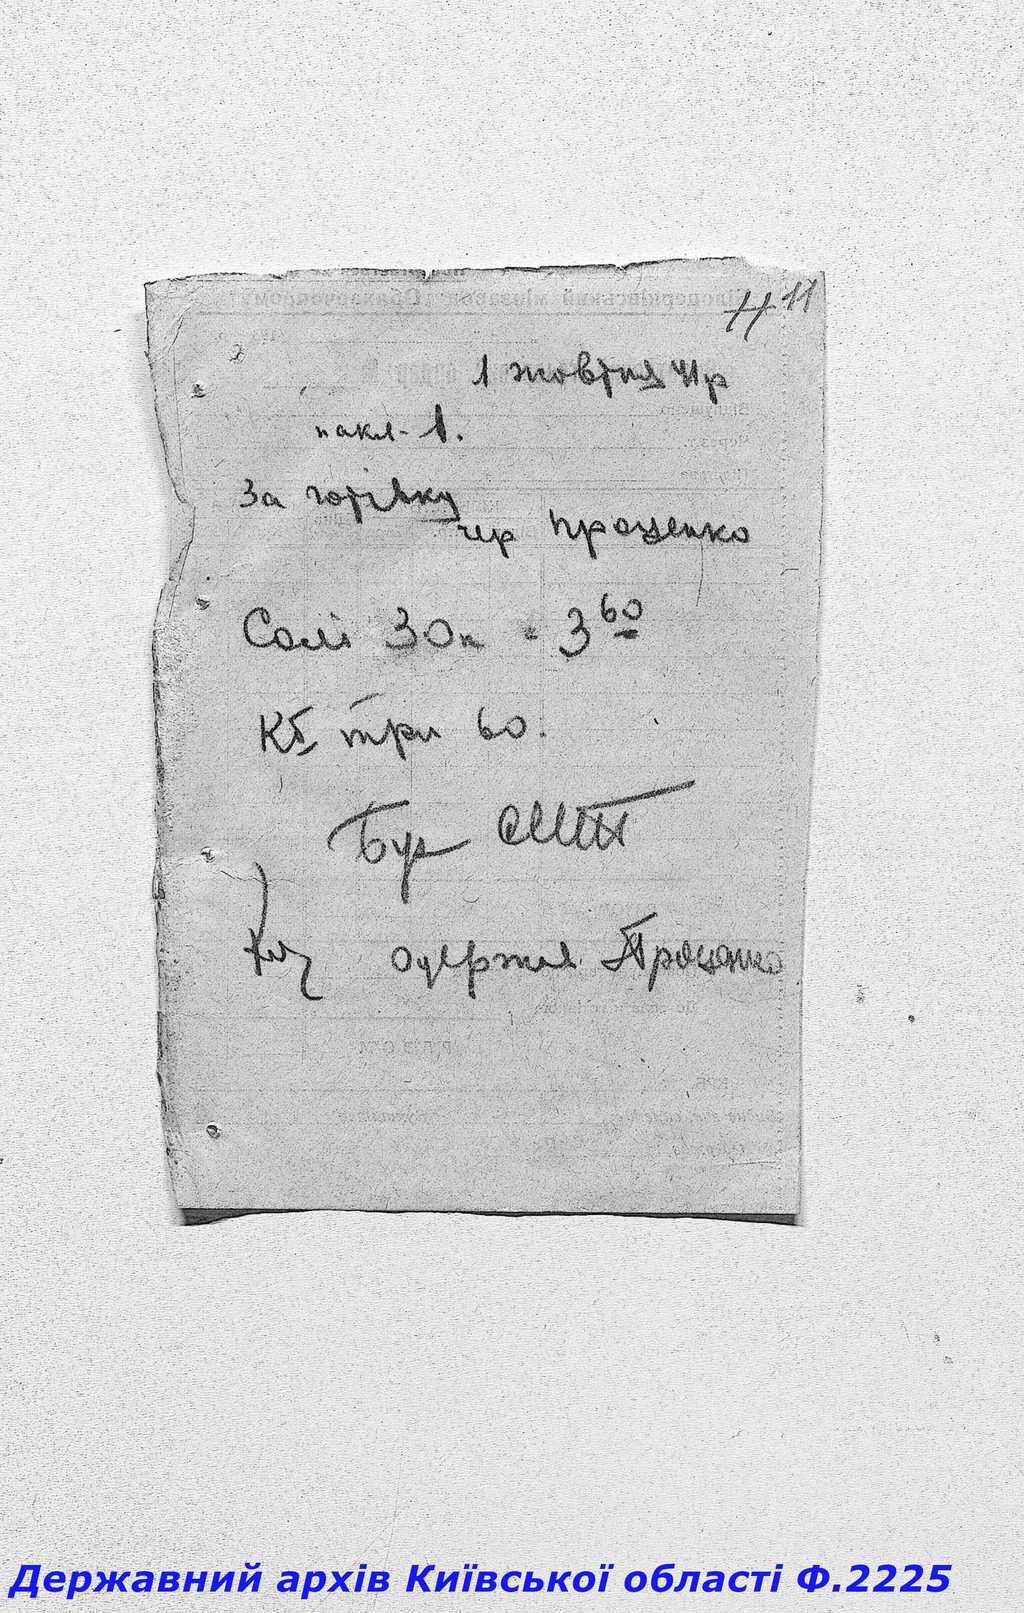 11 11
1 жовтня 41р
накл-1.
За готівку
чер Проценко
Солі 30к = 3 60
Кб три 60.
Бух
Одержал Проценко
Державний архів Київської області Ф.2225